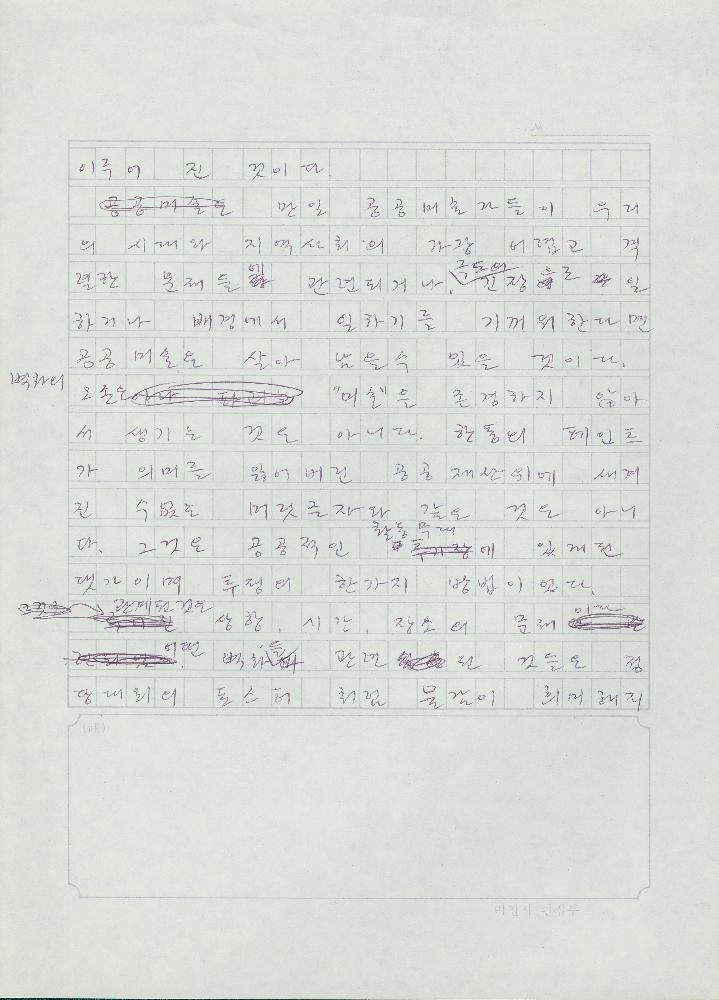 이루어 진 것이다.
만일 공공미술가들이 우리
의 시대와 지역사회의 가장 어렵고 격
렬한 문제들에 관련되거나, 극도의 긴장으로 일
하거나 배경에서 일하기를 기꺼워한다면
공공미술은 살아 남을수 있을 것이다.
벽화의 오손은 "미술"을 존경하지 않아
서 생기는 것은 아니다. 한통의 페인트
가 의미를 잃어버린 공공 재산위에 새겨
진 수많은 머릿글자와 같은 것은 아니
다. 그것은 공공적인 활동무대에 있게된
댓가이며 투쟁의 한가지 방법이었다.
관계된 것은 상황, 시간, 장소의 문제이다
어떤 벽화들 관련된 것들은 정
당대회의 포스터 처럼 물감이 희미해지
(下)